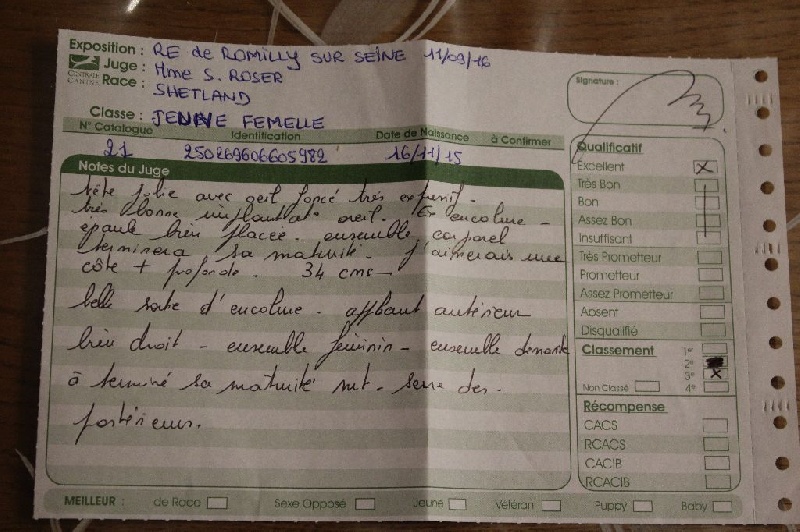 Exposition : RE de ROMILLY SUR SEINE 11/09/16
Juge : Mme S. ROSER
CENTRALE CANINE
Race : SHETLAND
Classe : JEUNE FEMELLE
N° Catalogue Identification Date de Naissance à Confirmer
21 250269606605982 16/11/15
Notes du Juge
tête jolie avec oeil foncé très expressif.
très bonne oreil. encolure -
épaule bien placée. ensemble corporel
terminera sa maturité. j'aimerais une
côte + profonde. 34 cms -
belle sortie d'encolure. aplomb antérieur
bien droit - ensemble féminin - ensemble demande
à terminé sa maturité mt. serre des
postérieurs.
Signature :
Qualificatif
Excellent X
Très Bon
Bon
Assez Bon
Insuffisant
Très Prometteur
Prometteur
Assez Prometteur
Absent
Disqualifié
Classement
1°
2°
3° X
4°
Non Classé
Récompense
CACS
RCACS
CACIB
RCACIB
MEILLEUR : de Race Sexe Opposé Jeune Vétéran Puppy Baby